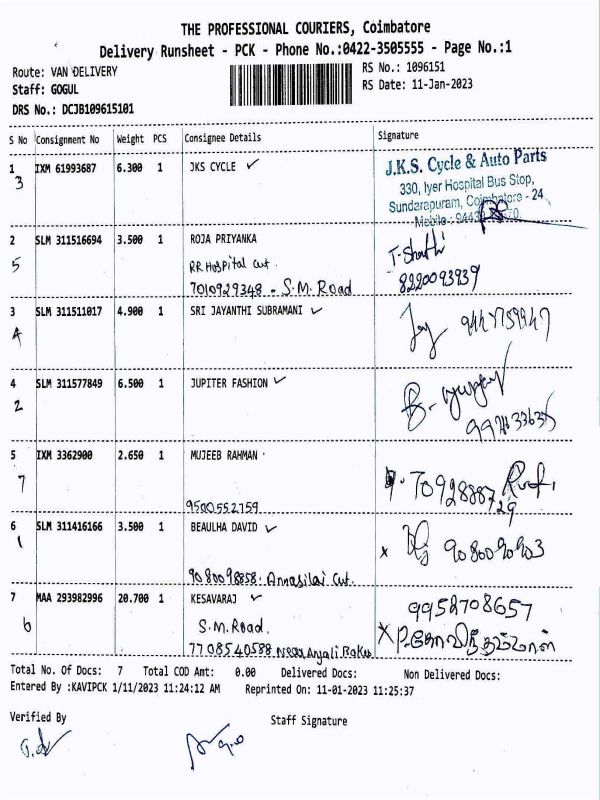 THE PROFESSIONAL COURIERS, Coimbatore
Delivery Runsheet - PCK - Phone No.:0422-3505555 - Page No.:1
Route: VAN DELIVERY
RS No.: 1096151
Staff: GOGUL
RS Date: 11-Jan-2023
DRS No.: DCJB109615101
S No Consignment No Weight PCS Consignee Details Signature
1 IXM 61993687 6.300 1 JKS CYCLE ✓
3
J.K.S. Cycle & Auto Parts
330, Iyer Hospital Bus Stop,
Sundarapuram, Coimbatore - 24
2 SLM 311516694 3.500 1 ROJA PRIYANKA
5
RR Hospital cut.
7010929348 - S.M. Road
8220093939
3 SLM 311511017 4.900 1 SRI JAYANTHI SUBRAMANI ✓
4
4 SLM 311577849 6.500 1 JUPITER FASHION ✓
2
5 IXM 3362900 2.650 1 MUJEEB RAHMAN
7
9500552759
6 SLM 311416166 3.500 1 BEAULHA DAVID ✓
1
9080098858. Annasilai Cut.
7 MAA 293982996 20.700 1 KESAVARAJ ✓
6
S.M. Road.
7708540588 Near Anjali
9952708657
Total No. Of Docs: 7 Total COD Amt: 0.00 Delivered Docs: Non Delivered Docs:
Entered By :KAVIPCK 1/11/2023 11:24:12 AM Reprinted On: 11-01-2023 11:25:37
Verified By Staff Signature